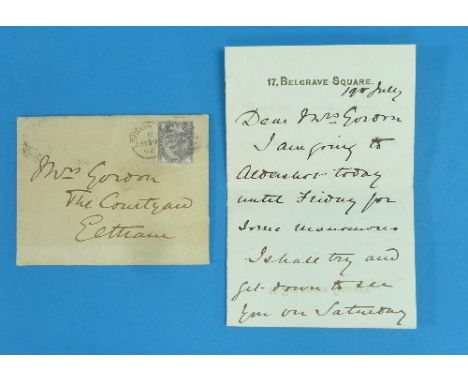 Mrs Gordon
The Courtyard
Eltham
17. BELGRAVE SQUARE.
19th July
Dear Mrs Gordon
I am going to
Aldershot today
until Friday for
some manoeuvres
I shall try and
get down to see
you on Saturday